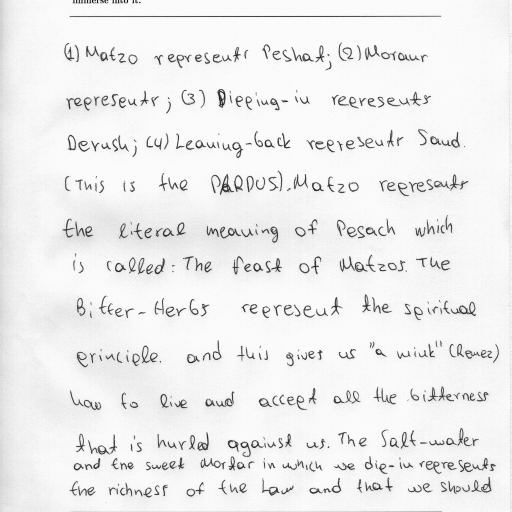 immerse into it.
(1) Matzo represents Peshat; (2) Moraur
represents; (3) Dipping-in represents
Derush; (4) Leaning-back represents Saud.
(This is the PARDUS). Matzo represents
the literal meaning of Pesach which
is called: The feast of Matzos. The
Bitter-Herbs represent the spiritual
principle. and this gives us "a wink" (Remez)
how to live and accept all the bitterness
that is hurled against us. The Salt-water
and the sweet Mortar in which we dip-in represents
the richness of the Law and that we should